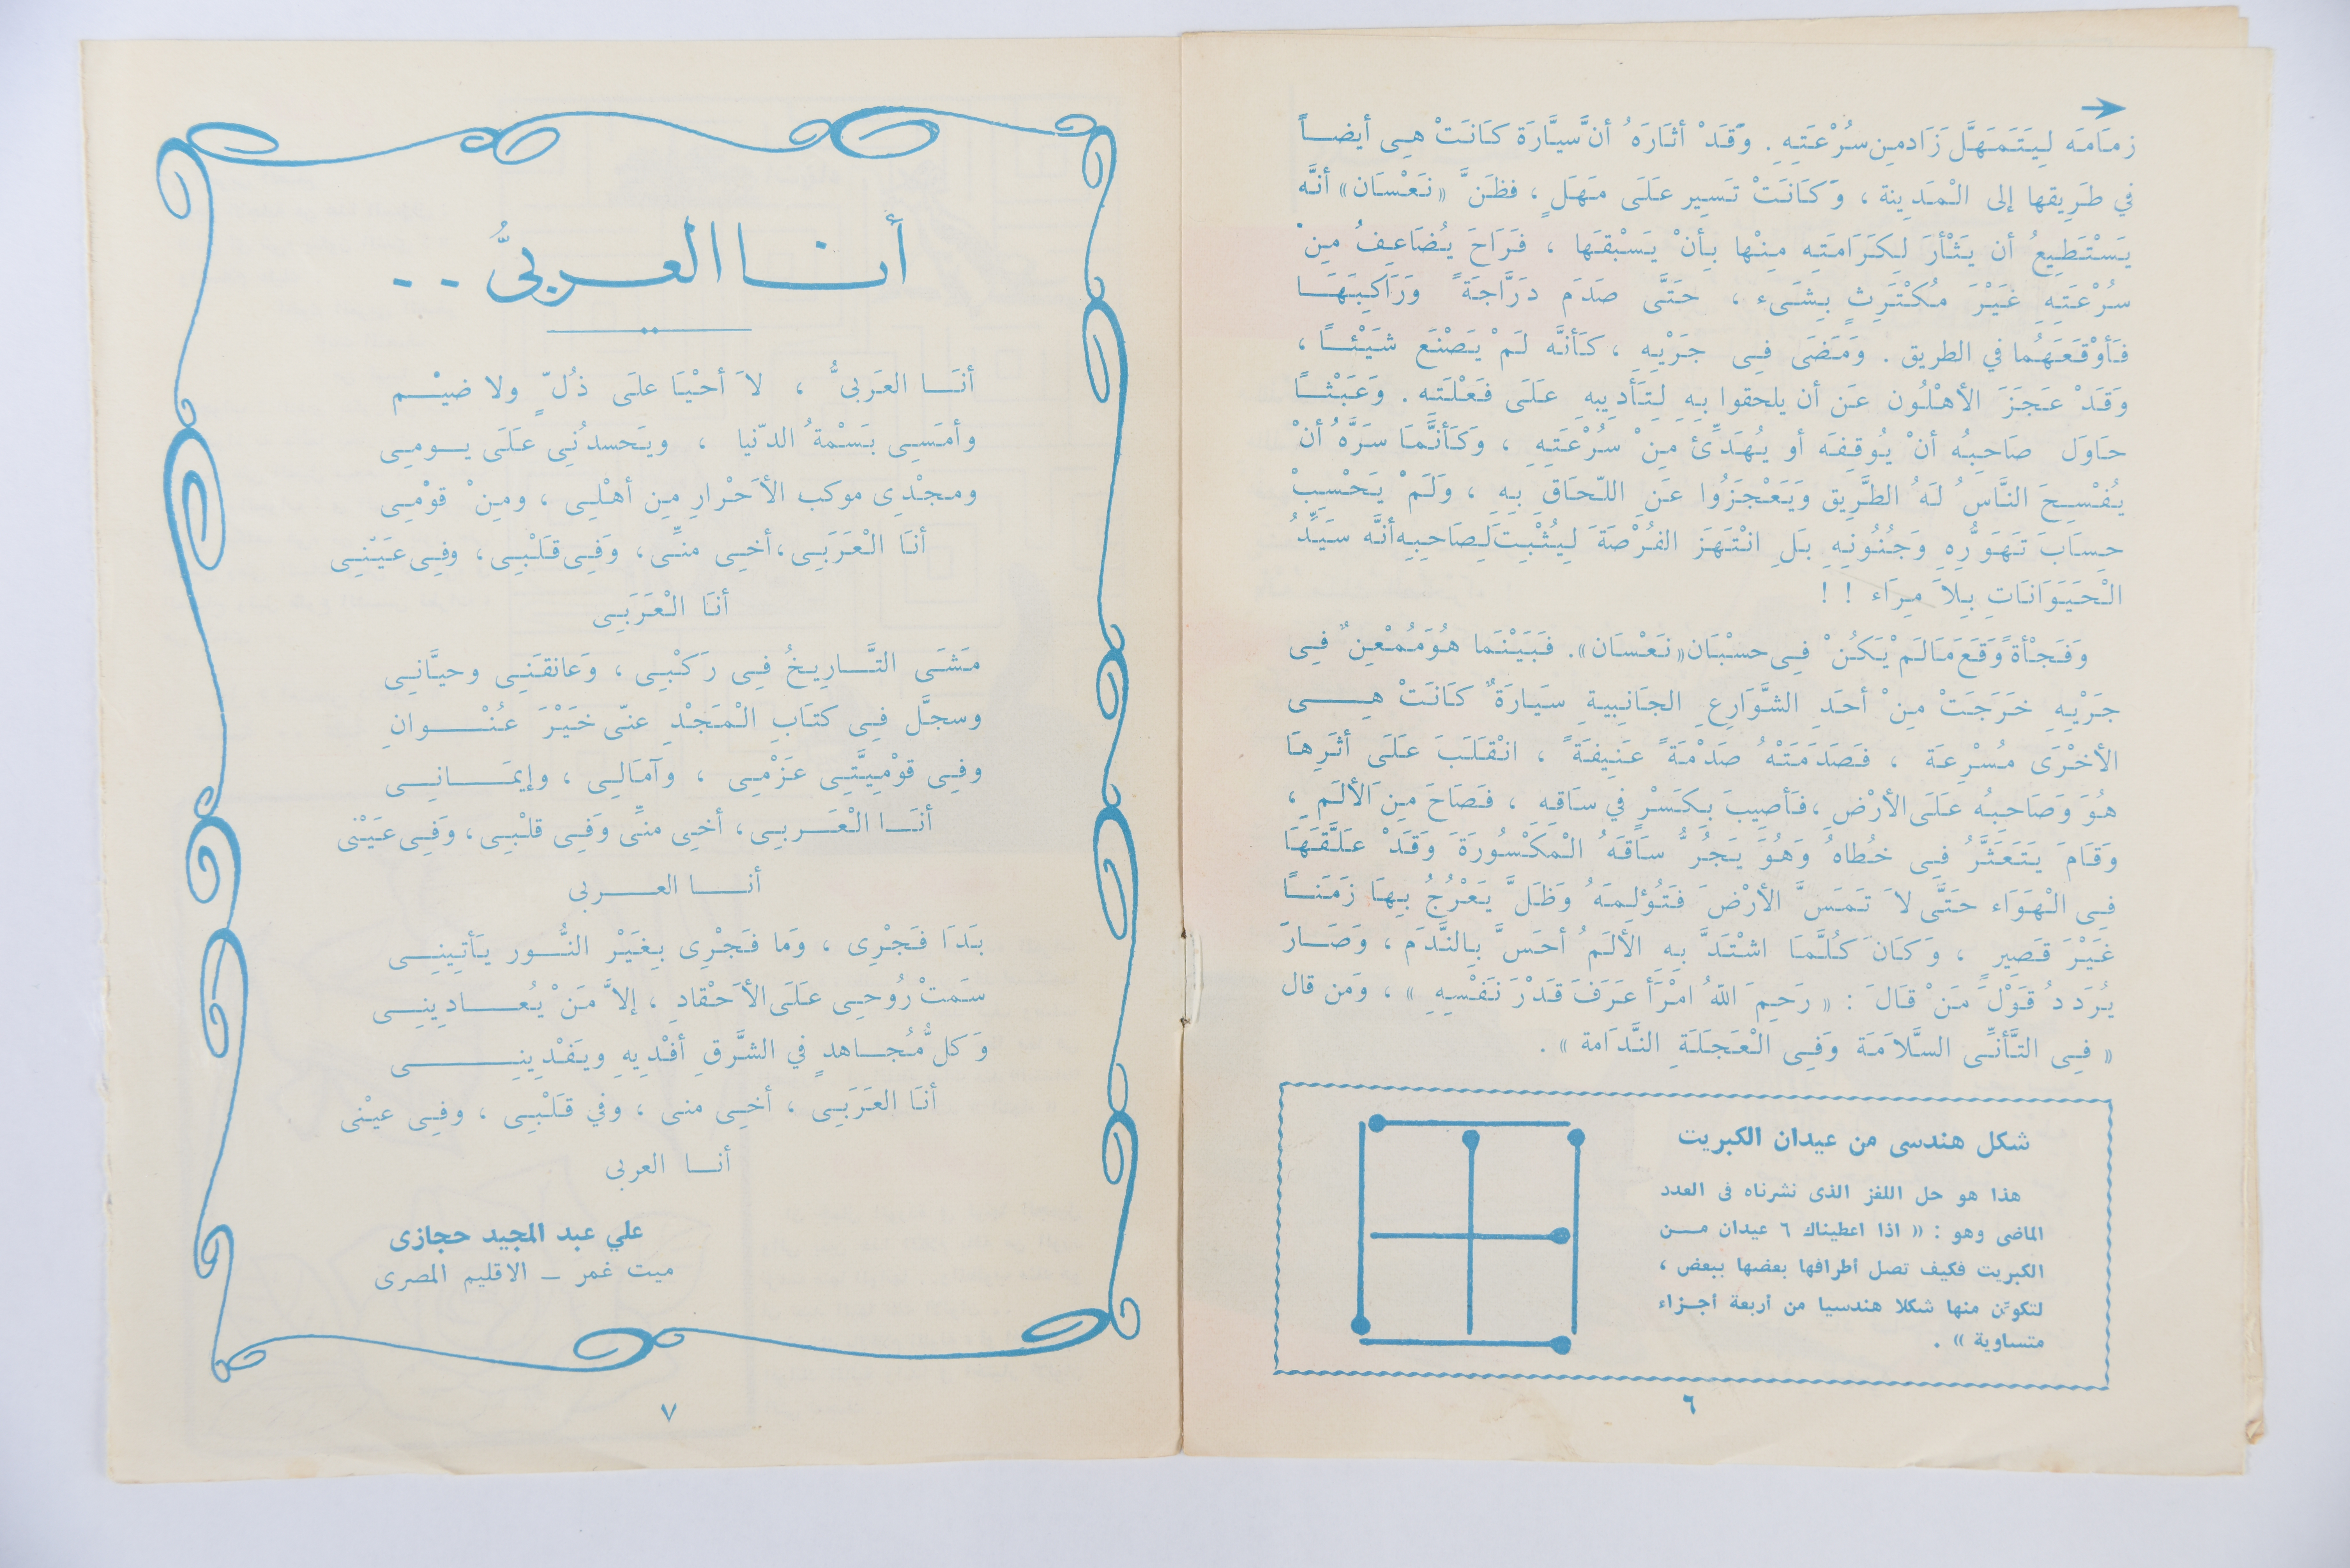 زمَامَه لِيَتَمَهَّل زَاد مِن سُرْعَتِهِ . وَقَدْ أثَارَهُ أنَّ سيَّارَة كَانَتْ هِى أيضــاً
في طَرِيقها إلى الْمَدِينة ، وَكَانَتْ تَسِير عَلَى مَهَلٍ ، فظَنَّ « نَعْسَان » أنَّه
يَسْتَطِيعُ أن يَثْأرَ لِكَرَامَتِه مِنْها بِأنْ يَسْبقَها ، فَرَاحَ يُضَاعِفُ مِنْ
سُرْعَتِهِ غَيْرَ مُكْتَرِثٍ بِشَىء ، حَتَّى صَدَم دَرَّاجَةً وَرَاكِبَهَــا
فَأوْقَعَهُما في الطريق . وَمَضَى فِى جَرْيِهِ ، كَأنَّه لَمْ يَصْنَع شَيْئــًا ،
وَقَدْ عَجَزَ الأهْلُون عَن أن يلحقوا بِهِ لِتَأدِيبِهِ عَلَى فَعْلَتِه . وَعَبَثْــًا
حَاوَل صَاحِبُه أنْ يُوقِفَه أو يُهَدِّئ مِنْ سُرْعَتِهِ ، وَكَأنَّمَا سَرَّهُ أنْ
يُفْسِحَ النَّاسُ لَهُ الطَّرِيق وَيَعْجَزُوا عَنِ اللّحَاقِ بِهِ ، وَلَمْ يَحْسِبْ
حِسَابَ تَهَوُّرِهِ وَجُنُونِهِ بَلِ انْتَهَزَ الفُرْصَةَ لِيُثْبِتَ لِصَاحِبِهِ أنَّه سَيِّدُ
الْحَيَوَانَاتِ بِلاَ مِرَاء ! !
وَفَجْأةً وَقَعَ مَالَمْ يَكُنْ فِى حسْبَان « نَعْسَان » . فَبَيْنَما هُوَ مُمْعِنٌ فِى
جَرْيِهِ خَرَجَتْ مِنْ أحَدِ الشَّوَارِعِ الجَانِبِيةِ سَيَارَةٌ كَانَتْ هِــى
الأخْرَى مُسْرِعَة ، فَصَدَمَتْهُ صَدْمَةً عَنِيفَةً ، انْقَلَبَ عَلَى أثَرِهَا
هُوَ وَصَاحِبُه عَلَى الأرْضِ ، فَأصِيبَ بِكَسْرٍ في سَاقِهِ ، فَصَاحَ مِنَ الألَمِ ،
وَقَامَ يَتَعَثَّرُ فِى خُطاهُ وَهُوَ يَجُرُّ سَاقَهُ الْمَكْسُورَةَ وَقَدْ عَلَّقَهَا
فِى الْهَوَاء حَتَّى لاَ تَمَسَّ الأرْضَ فَتُؤلِمَهُ وَظَلَّ يَعْرُجُ بِهَا زَمَنــًا
غَيْرَ قَصِيرٍ ، وَكَانَ كُلَّمَا اشْتَدَّ بِهِ الألَمُ أحَسَّ بِالنَّدَم ، وَصَــارَ
يُرَددُ قَوْلَ مَنْ قَالَ : « رَحِمَ اللّهُ امْرَأ عَرَفَ قَدْرَ نَفْسِهِ » ، وَمَن قال
« فِى التَّأنِّى السَّلاَمَة وَفِى الْعَجَلَةِ النَّدَامة » .
شكل هندسى من عيدان الكبريت
هذا هو حل اللغز الذى نشرناه فى العدد
الماضى وهو : « اذا اعطيناك ٦ عيدان مــن
الكبريت فكيف تصل أطرافها بعضها ببعض ،
لتكوّن منها شكلا هندسيا من أربعة أجـزاء
متساوية » .
٦
أنــا العــربىُّ . .
أنَــا العَربىُّ ، لاَ أحْيَا علَى ذُلٍّ ولا ضيْــم
وأمَسِى بَسْمةُ الدّنيا ، ويَحسدُنِى عَلَى يــومِى
ومجْدِى موكب الأحْرارِ مِن أهْلِى ، ومِنْ قوْمِى
أنَا الْعَرَبِى ، أخِى منِّى ، وَفِى قَلْبِى ، وفِى عَيْنِى
أنَا الْعَرَبِى
مَشَى التَّــارِيخُ فِى رَكْبِى ، وَعانقَنِى وحيَّانِى
وسجَّل فِى كتَابِ الْمَجْدِ عنّى خَيْرَ عُنْــوانِ
وفِى قوْمِيَّتِى عَزْمِى ، وآمَالِى ، وإيمَــانِى
أنَــا الْعَــربِى ، أخِى منِّى وَفِى قلْبِى ، وَفِى عَيْنى
أنــا العــربى
بَدَا فَجْرِى ، وَما فَجْرِى بِغَيْر النُّــور يَأتِينِــى
سَمتْ رُوُحِى عَلَى الأَحْقادِ ، إلاَّ مَنْ يُعــادِينِــى
وَكلُّ مُجــاهدٍ في الشَّرَقِ أفْدِيهِ ويَفْدِينِــى
أنَا العَرَبِى ، أخِى منى ، وفي قَلْبِى ، وفِى عيْنى
أنــا العربى
علي عبد المجيد حجازى
ميت غمر ــ الاقليم المصرى
٧